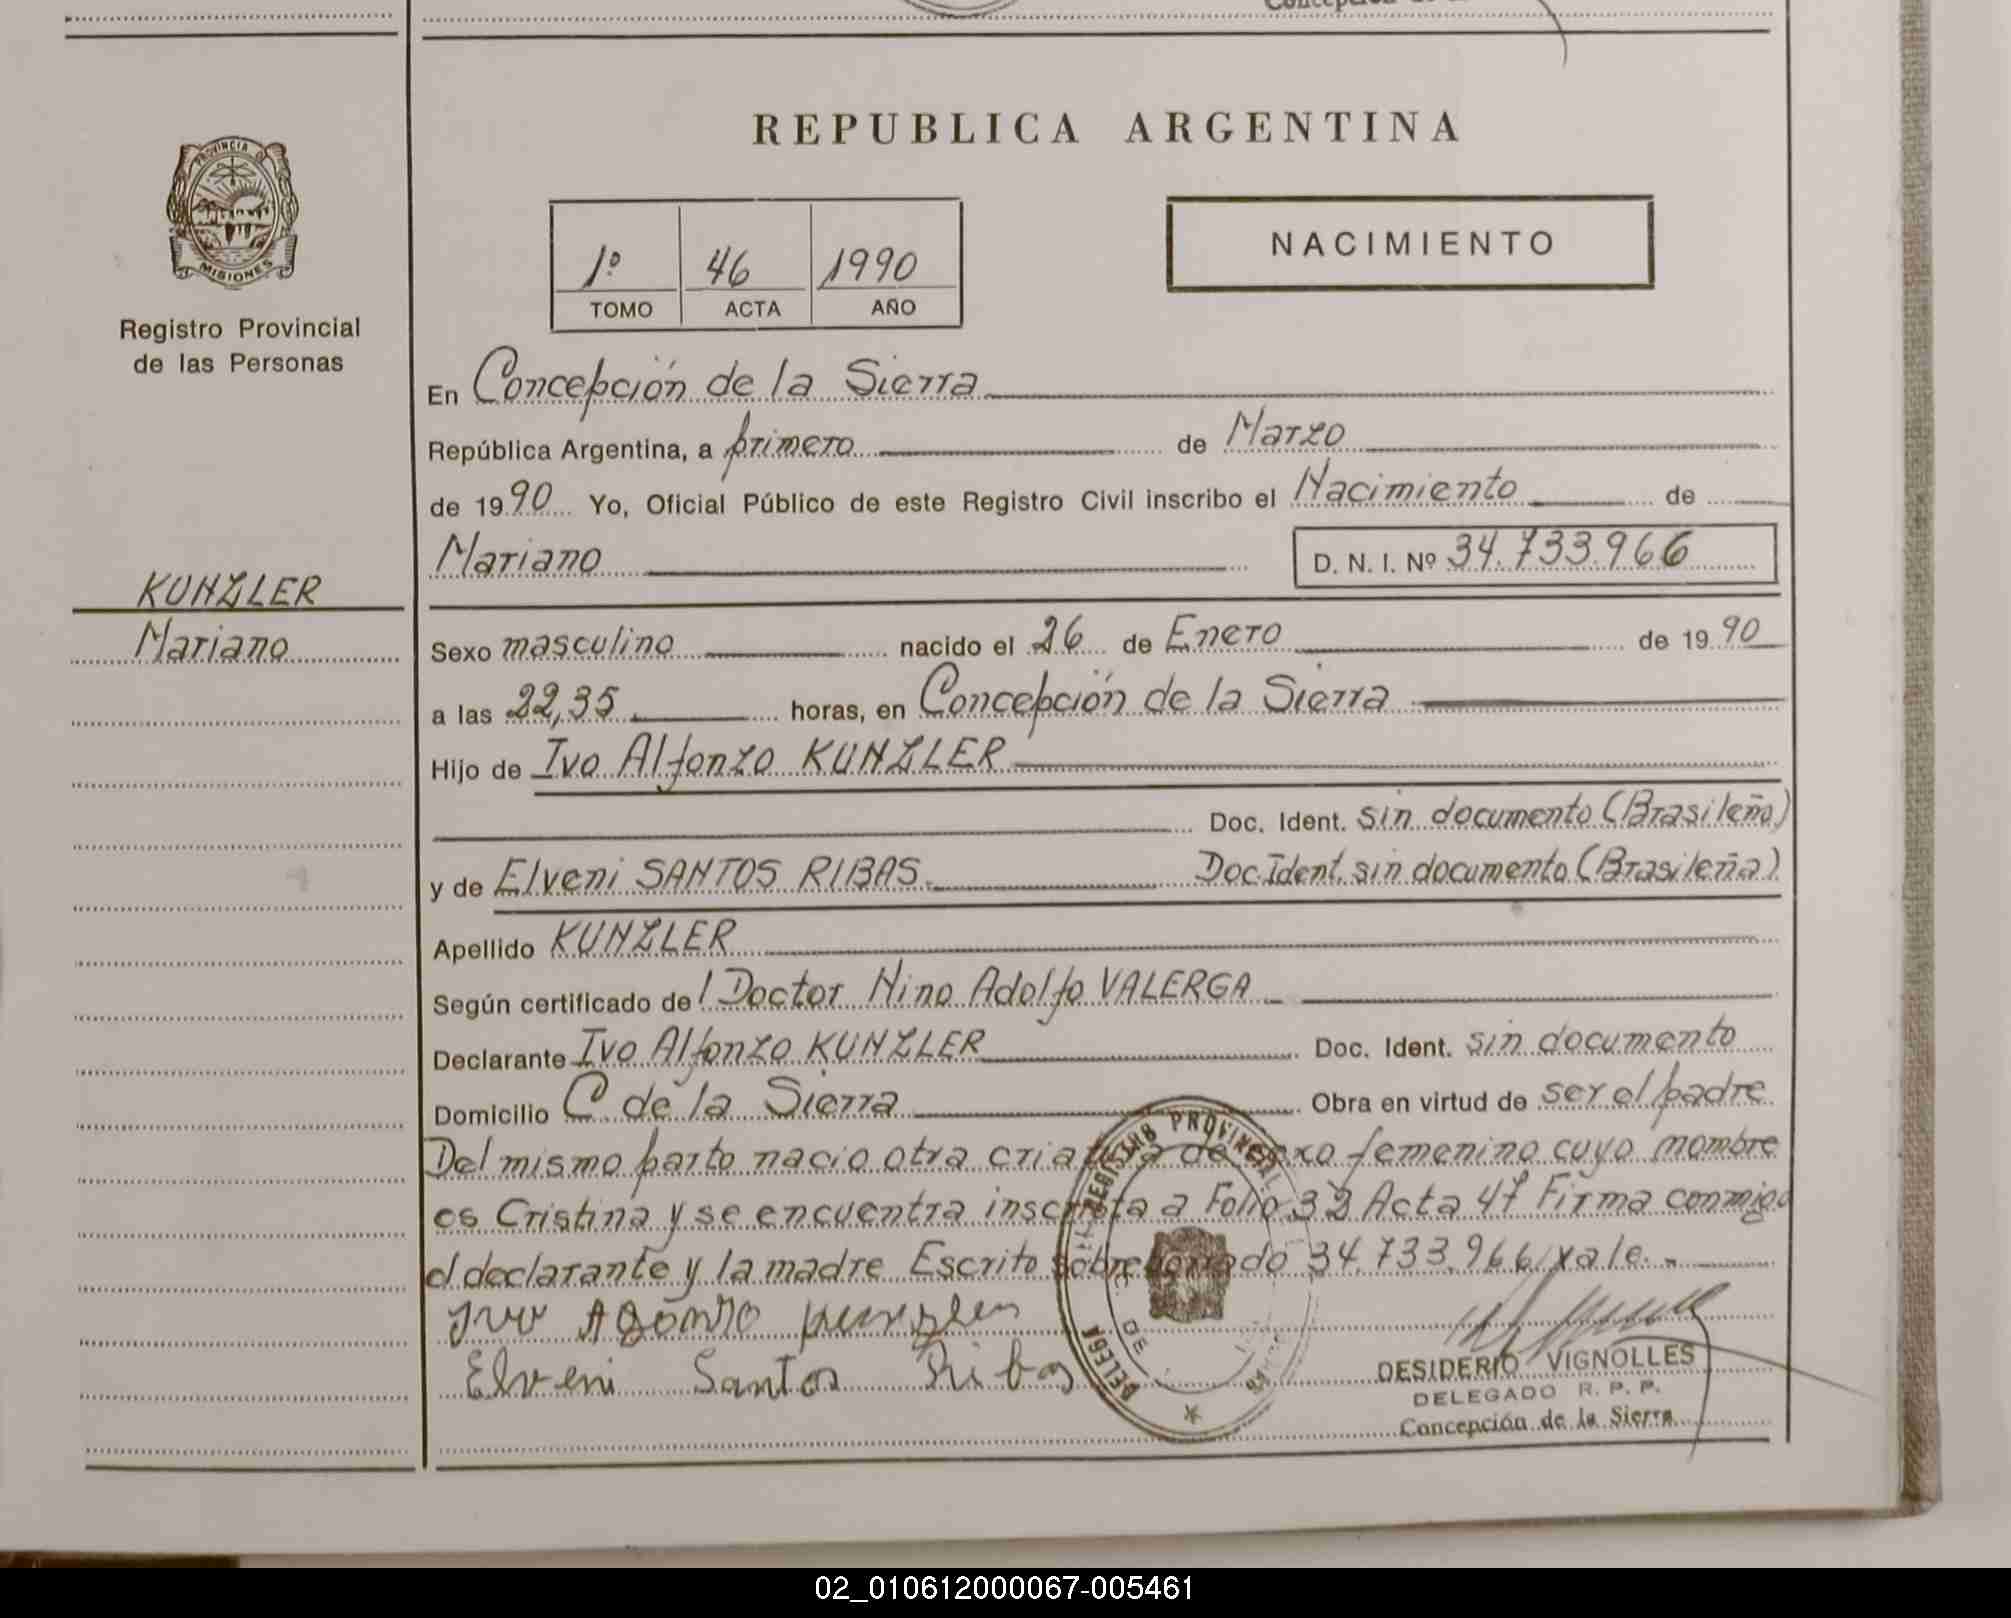 REPUBLICA ARGENTINA
PROVINCIA D
MISIONES
Registro Provincial
de las Personas
1º 46 1990
TOMO ACTA AÑO
NACIMIENTO
En Concepción de la Sierra
República Argentina, a primero de Marzo
de 1990 Yo, Oficial Público de este Registro Civil inscribo el Nacimiento de
Mariano D. N. I. Nº 34.733.966
KUNZLER
Mariano
Sexo masculino nacido el 26 de Enero de 1990
a las 22,35 horas, en Concepción de la Sierra
Hijo de Ivo Alfonzo KUNZLER
Doc. Ident. sin documento (Brasileño)
y de Elveni SANTOS RIBAS. Doc Ident. sin documento (Brasileña)
Apellido KUNZLER
Según certificado del Doctor Nino Adolfo VALERGA
Declarante Ivo Alfonzo KUNZLER Doc. Ident. sin documento
Domicilio C. de la Sierra Obra en virtud de ser el padre
Del mismo parto nacio otra criatura de sexo femenino cuyo nombre
es Cristina y se encuentra inscripta a Folio 32 Acta 47 Firma conmigo
el declarante y la madre Escrito sobreborrado 34.733.966/vale.-
Ivo
Elveni Santos Ribas
REGISTRO PROVINCIAL DE
DELEGA
DESIDERIO VIGNOLLES
DELEGADO R. P. P.
Concepción de la Sierra
02_010612000067-005461